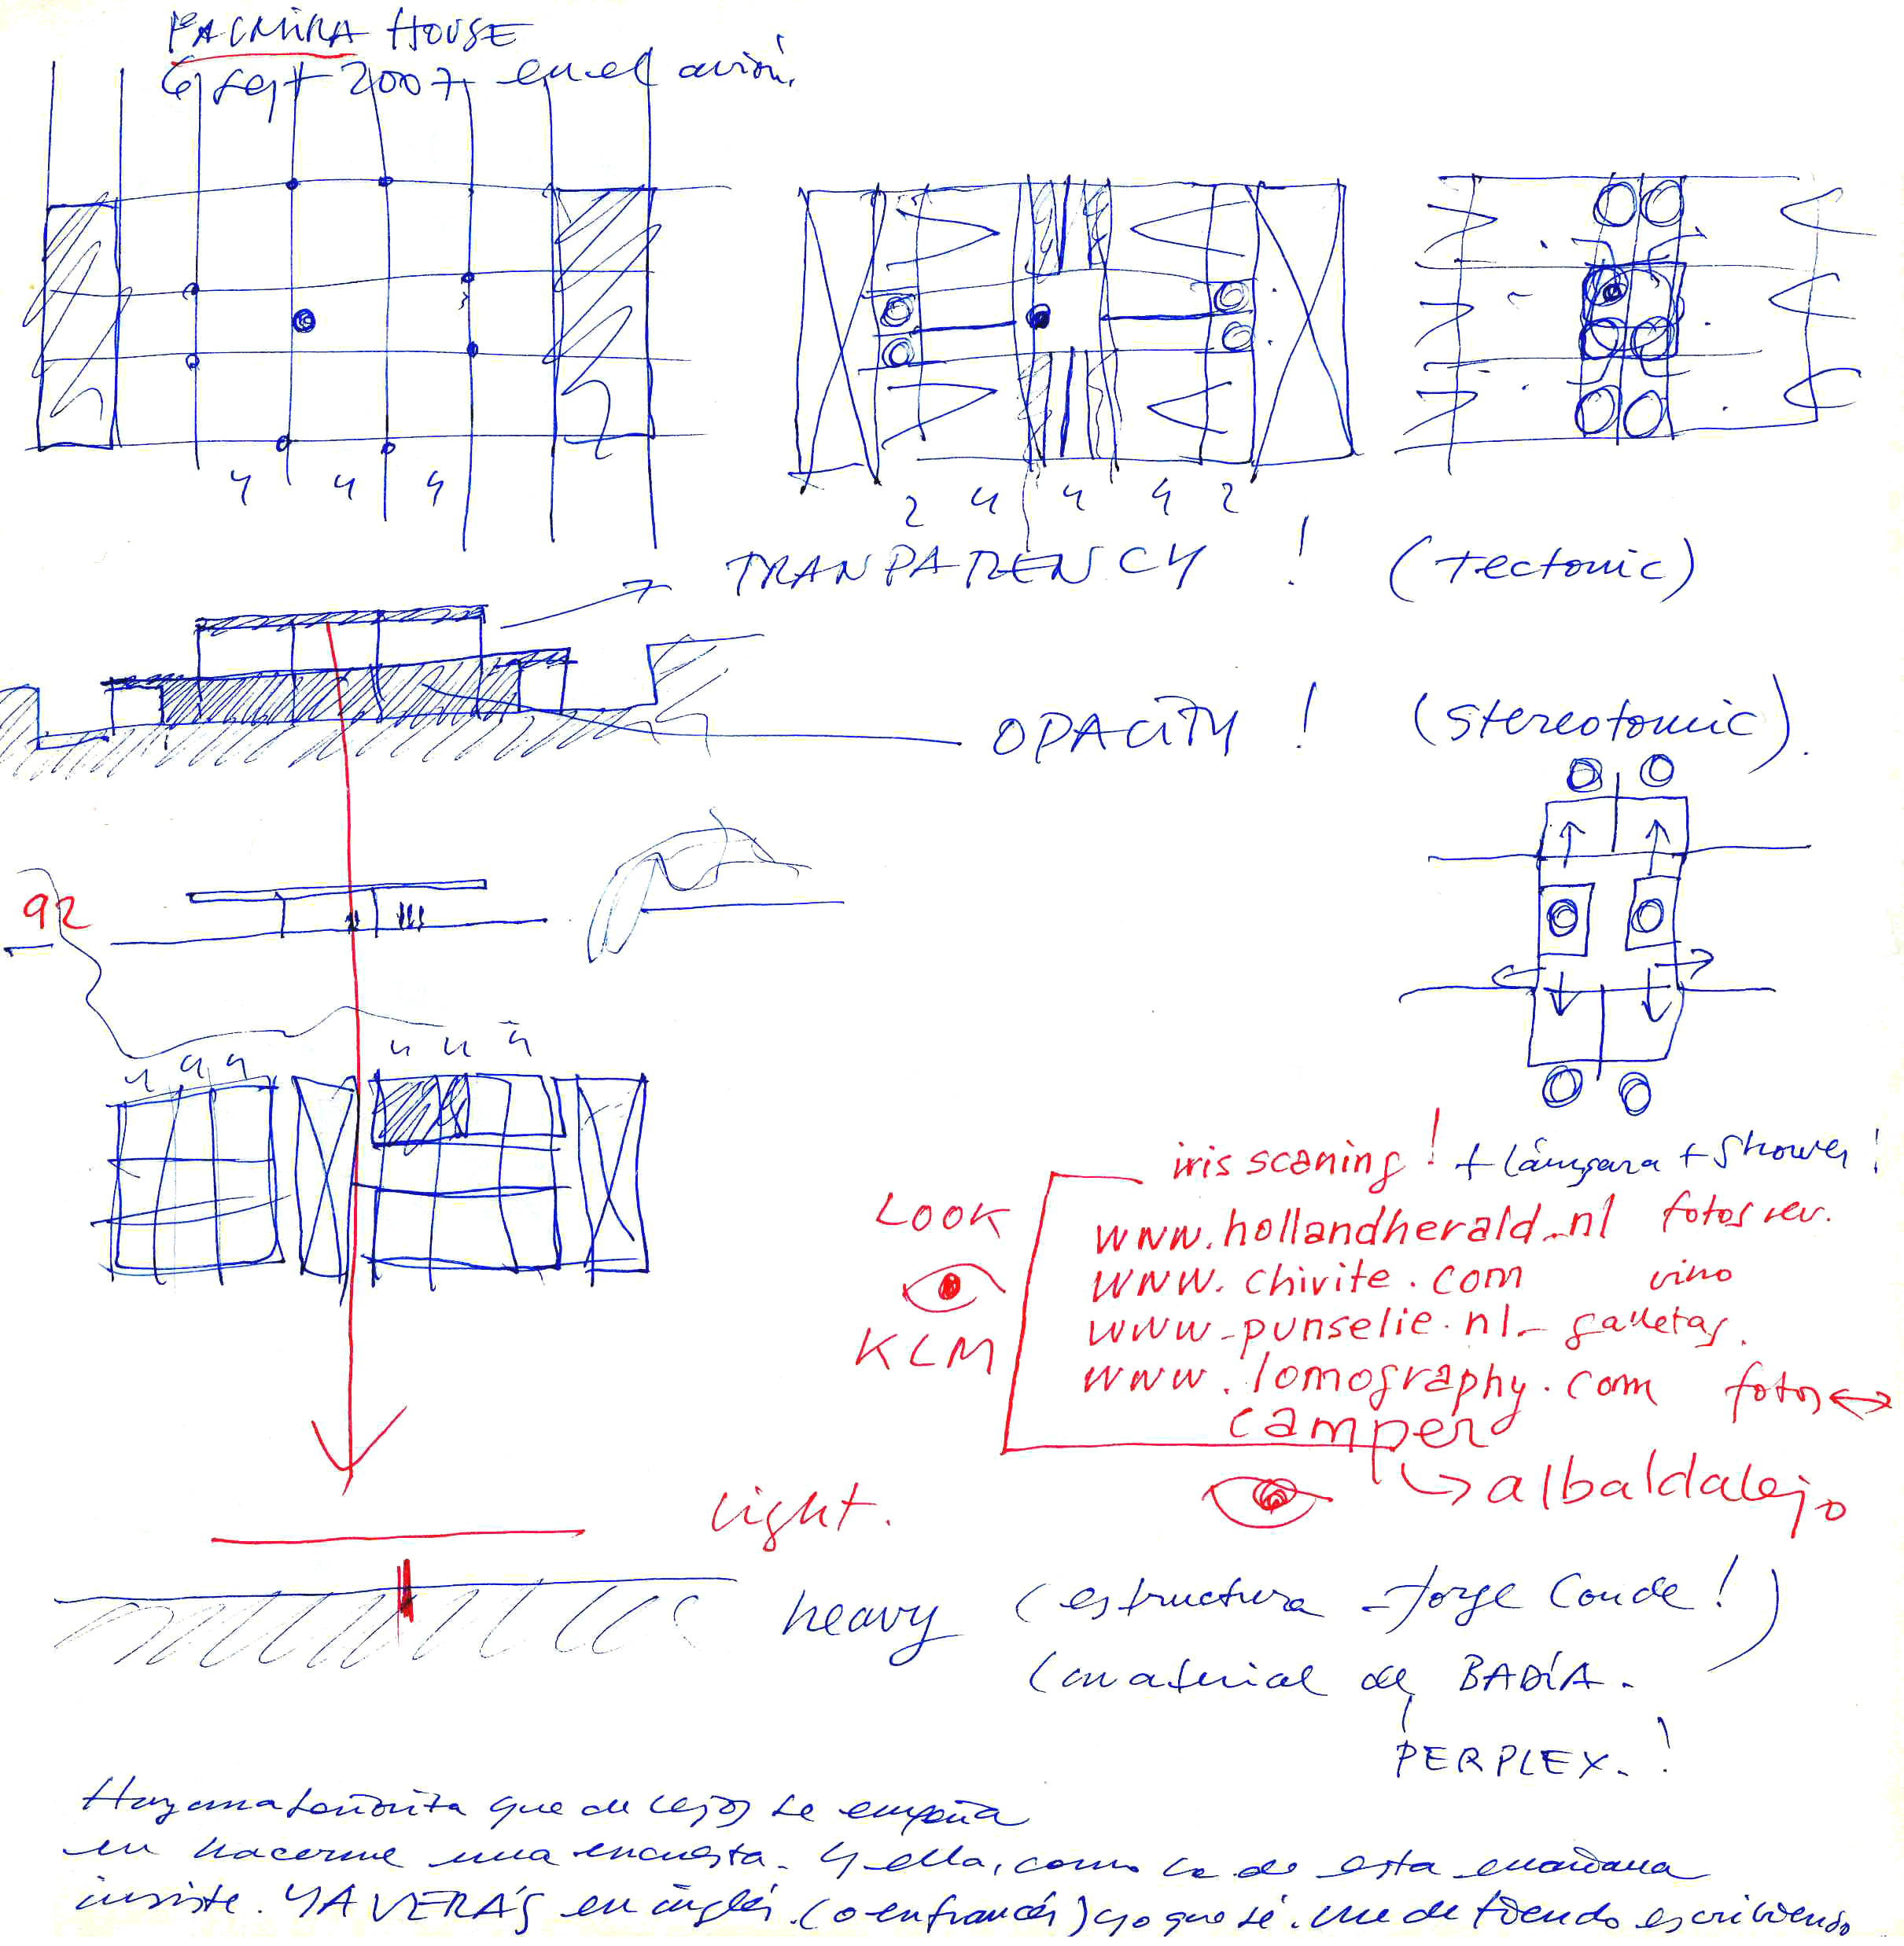 PALMIRA HOUSE
6 sept 2007, en el avión.
4 4 4
2 4 4 4 2
TRANPARENCY ! (tectonic)
OPACITY ! (stereotomic).
92
4 4 4 4 4 4
iris scaning ! + lámpara + shower !
LOOK
KLM
www.hollandherald.nl fotos rev.
www.chivite.com vino
www.punselie.nl galletas.
www.lomography.com fotos
camper
albaldalejo
light.
heavy (estructura - Jorge Conde !)
(material de BADÍA.
PERPLEX. !
Hay una señorita que de lejos se empeña
en hacerme una encuesta. Y ella, como la de esta mañana
insiste. YA VERÁS en inglés. (o en francés) yo que sé. me defiendo escribiendo